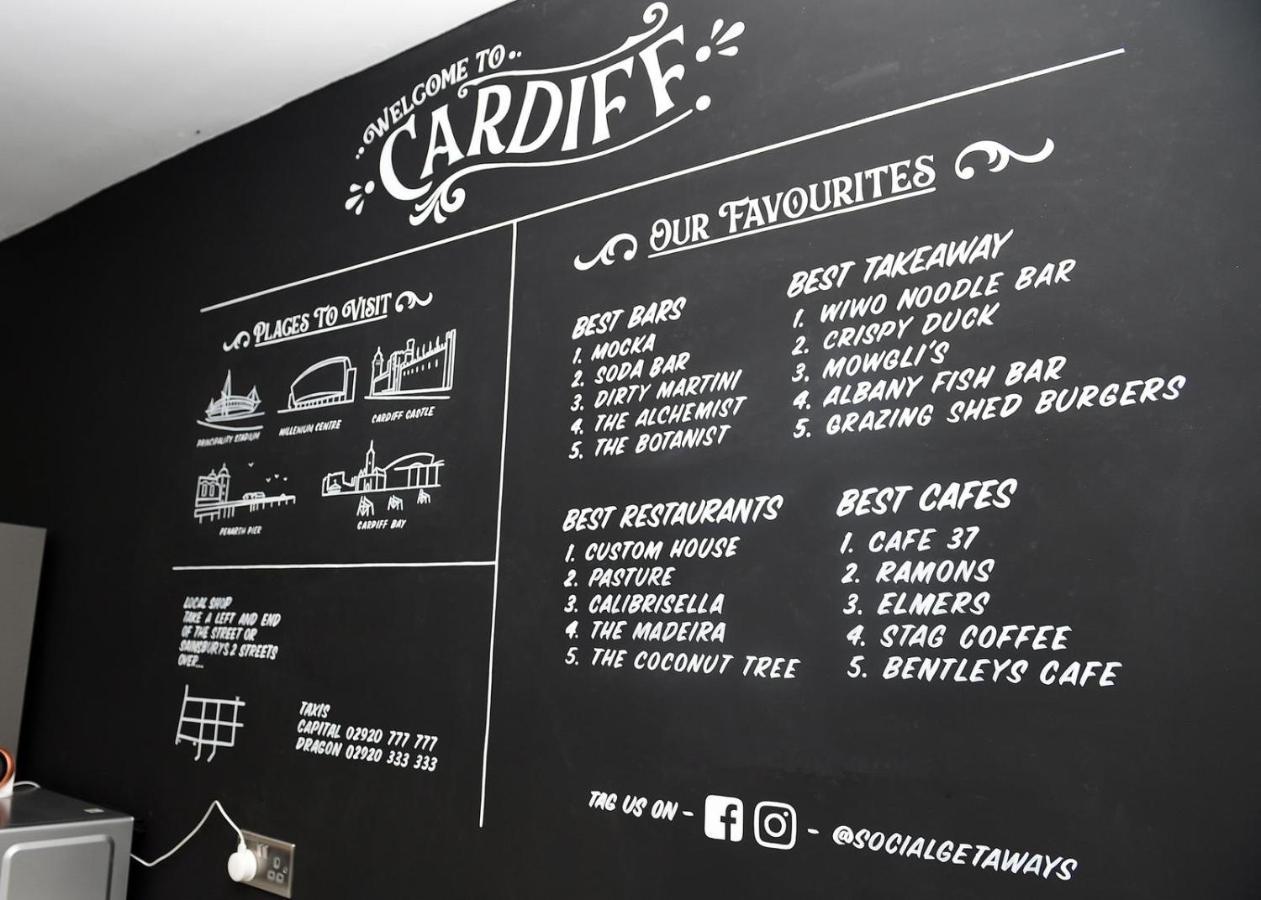 WELCOME TO
CARDIFF
PLACES TO VISIT
PRINCIPALITY STADIUM
MILLENIUM CENTRE
CARDIFF CASTLE
PENARTH PIER
CARDIFF BAY
LOCAL SHOP
TAKE A LEFT AND END
OF THE STREET OR
SAINSBURYS 2 STREETS
OVER...
TAXIS
CAPITAL 02920 777 777
DRAGON 02920 333 333
OUR FAVOURITES
BEST BARS
1. MOCKA
2. SODA BAR
3. DIRTY MARTINI
4. THE ALCHEMIST
5. THE BOTANIST
BEST TAKEAWAY
1. WIWO NOODLE BAR
2. CRISPY DUCK
3. MOWGLI'S
4. ALBANY FISH BAR
5. GRAZING SHED BURGERS
BEST RESTAURANTS
1. CUSTOM HOUSE
2. PASTURE
3. CALIBRISELLA
4. THE MADEIRA
5. THE COCONUT TREE
BEST CAFES
1. CAFE 37
2. RAMONS
3. ELMERS
4. STAG COFFEE
5. BENTLEYS CAFE
TAG US ON - - @SOCIALGETAWAYS